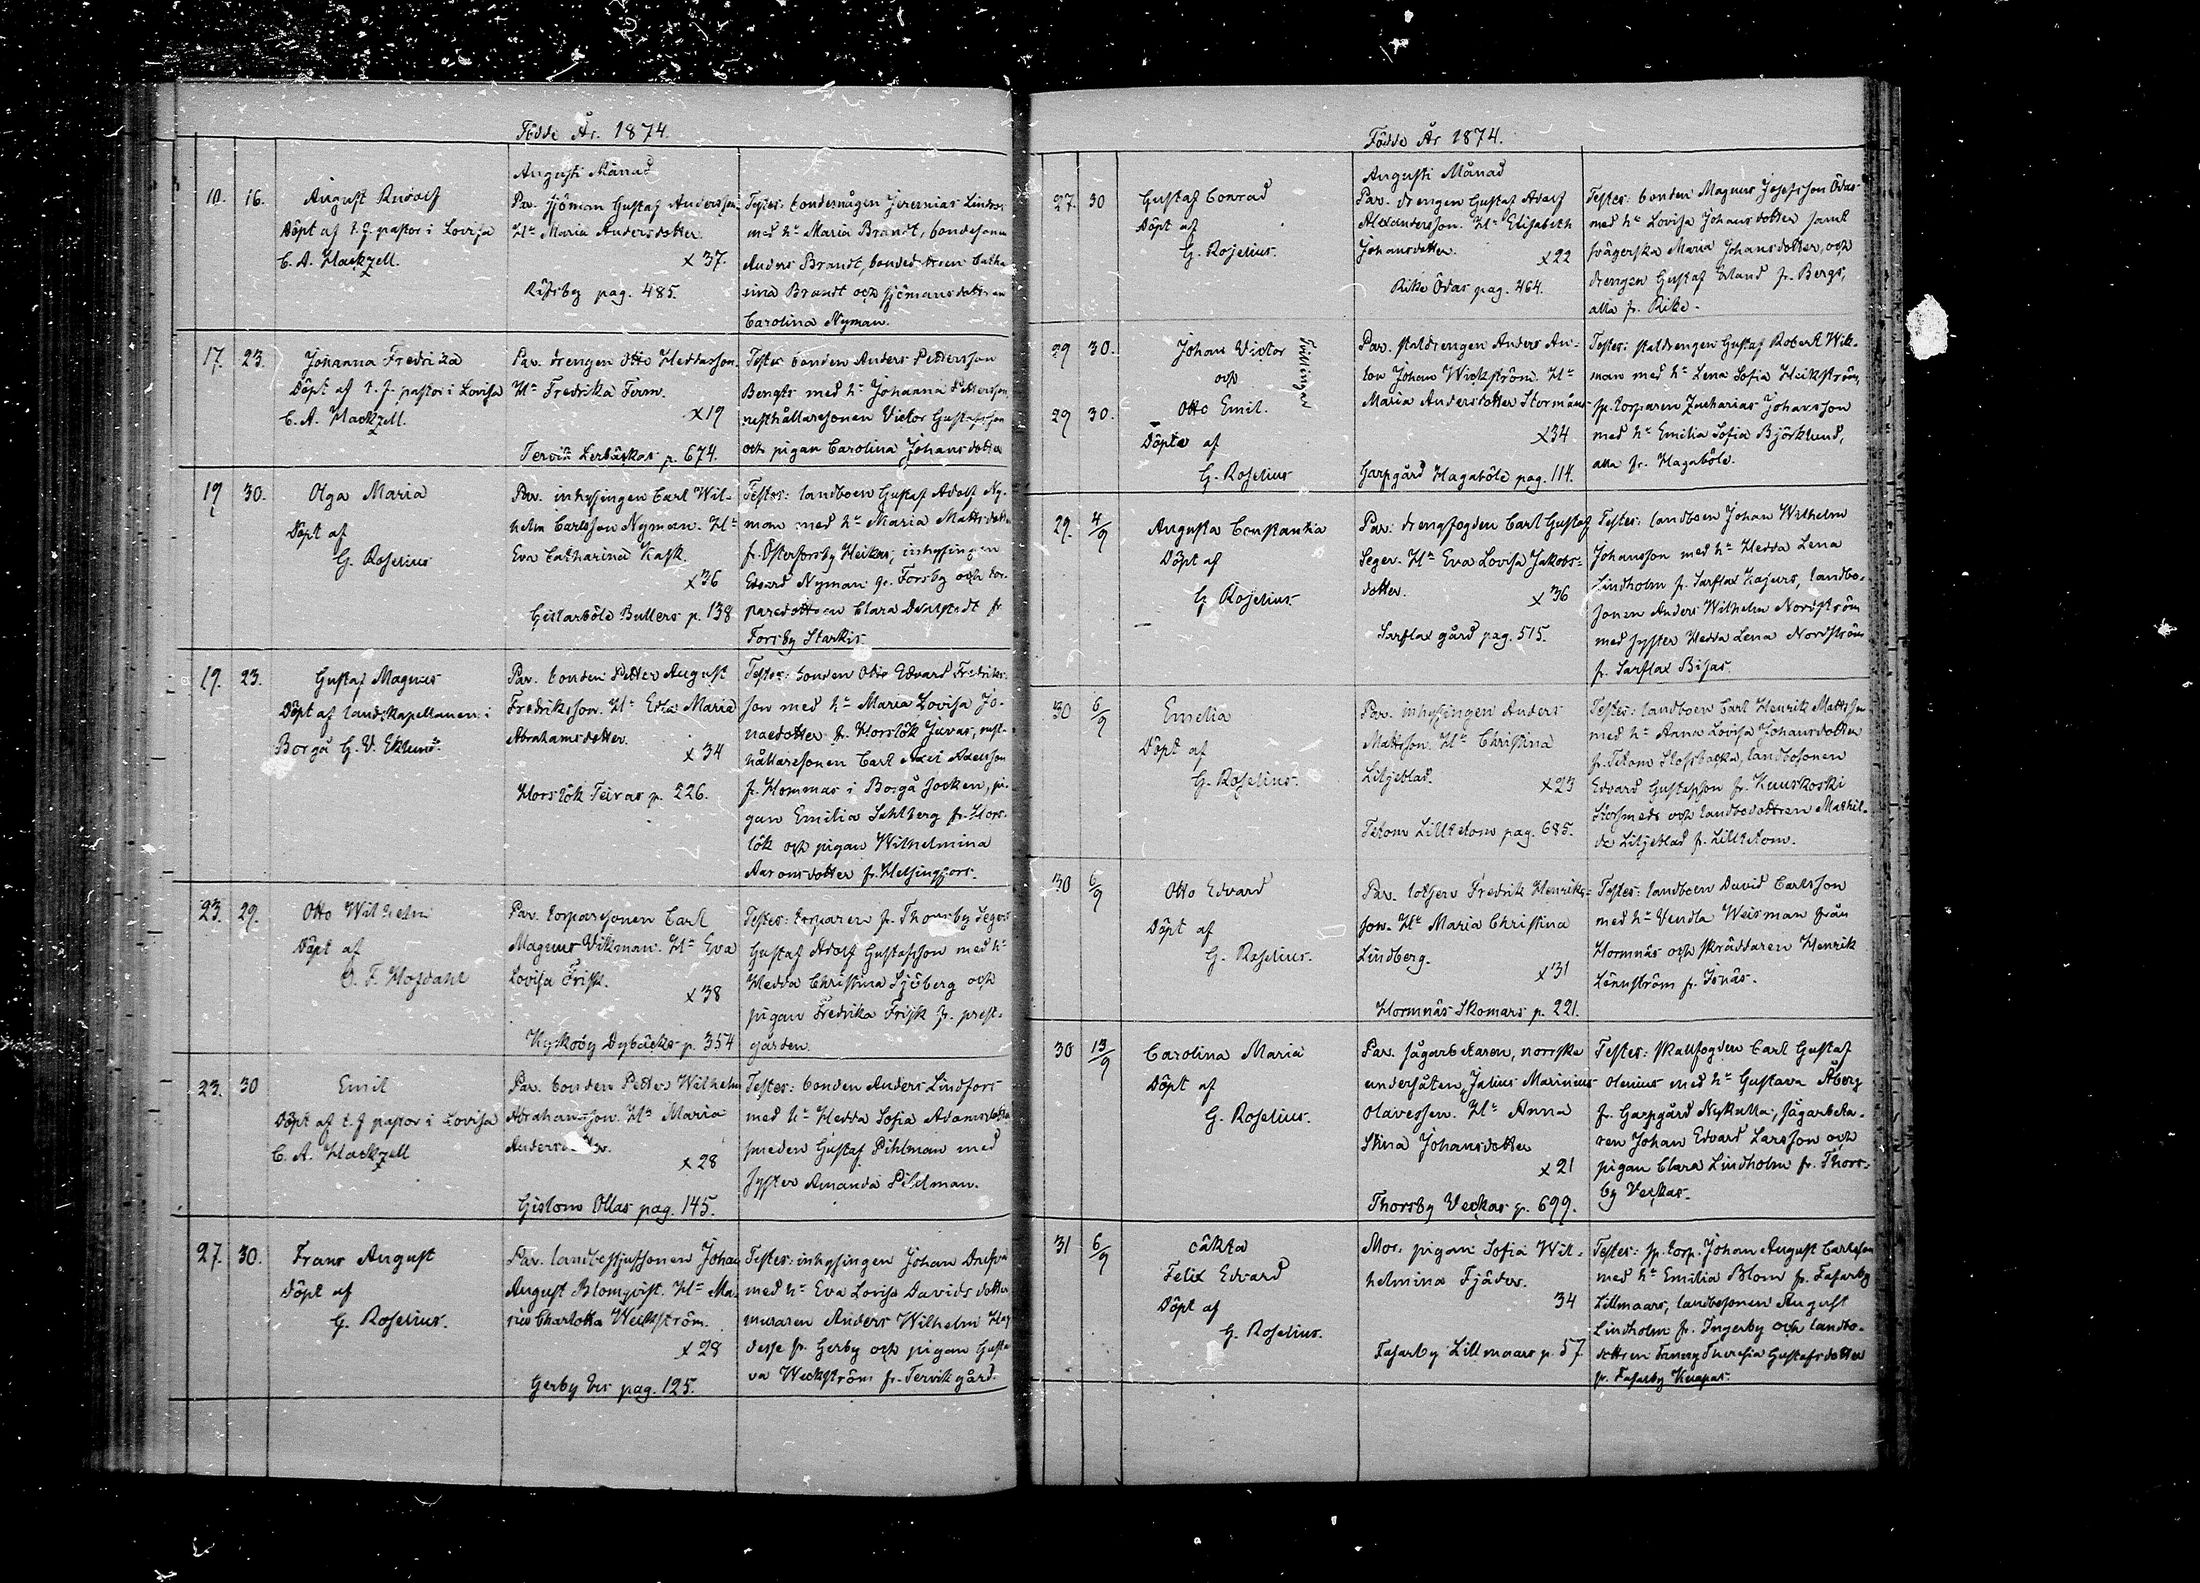 Födde År. 1874.
Augusti Månad
10. 16. August Rudolf
Döpt af t.f. pastor i Lovisa
C. A. Hackzell.
Par. sjöman Gustaf Andersson
H:u Maria Andersdotter
x 37.
Räfsby pag. 485.
Testes: bondemågen Jeremias Lindros
med h:u Maria Brandt, bondesonen
Anders Brandt, bondedottren Catha
rina Brandt och sjömansdottren
Carolina Nyman.
17. 23. Johanna Fredrika
Döpt af t. f. pastor i Lovisa
C. A. Hackzell.
Par. drengen Otto Heddasson.
H:u Fredrika Form.
x 19
Tervik Lerbäckas p. 674.
Testes bonden Anders Pettersson
Bengts med h:u Johanna Pettersson
rusthållaresonen Victor Gustafsson
och pigan Carolina Johansdotter
19 30. Olga Maria
Döpt af
G. Roselius
Par. inhysingen Carl Wil-
helm Carlsson Nyman. H:u
Eva Catharina Kask.
x 36
Gislarböle Bullers p. 138
Testes: landboen Gustaf Adolf Ny-
man med h:u Maria Mattsdotter
fr. Österforsby Heikas, inhysingen
Edvard Nyman fr. Forsby och tor-
paredottren Clara Dealstedt fr
Forsby Starkis.
19. 23. Gustaf Magnus
Döpt af landskapellanen i
Borgå G. V. Eklund.
Par. bonden Petter August
Fredriksson. H:u Edla Maria
Abrahamsdotter.
x 34
Horslök Teiras p. 226.
Testes: bonden Otto Edvard Fredriks-
son med h:u Maria Lovisa Jo-
nasdotter fr. Horslök Juvas, rust-
hållaresonen Carl Axel Axelsson
fr. Hommas i Borgå socken, pi-
gan Emilia Sahlberg fr. Hors-
lök och pigan Wilhelmina
Aaronsdotter fr. Helsingfors.
23. 29. Otto Wilhelm
Döpt af
O. F. Hofdahl
Par. torparesonen Carl
Magnus Vikman. H:u Eva
Lovisa Frisk.
x 38
Kyrkoby Dybäcks p. 354
Testes: torparen fr. Thorsby Segers
Gustaf Adolf Gustafsson med h:u
Hedda Christina Sjöberg och
pigan Fredrika Frisk fr. prest-
gården.
23. 30 Emil
Döpt af t. f pastor i Lovisa
C. A. Hackzell
Par. bonden Petter Wilhelm
Abrahamsson. H:u Maria
Andersdotter.
x 28
Gislom Ollas pag. 145.
Testes: bonden Anders Lindfors
med h:u Hedda Sofia Adamsdotter
smeden Gustaf Pihlman med
syster Amanda Pihlman.
27. 30. Frans August
Döpt af
G. Roselius.
Par. landbostjufsonen Johan
August Blomqvist. H:u Ma-
ria Charlotta Weckström.
x 28
Gerby Ers pag. 125.
Testes: inhysingen Johan
med h:u Eva Lovisa Davidsdotter
muraren Anders Wilhelm
fr. Gerby och pigan Gusta
va Weckström fr. Tervik gård.
Födde År 1874.
Augusti Månad
27. 30 Gustaf Conrad
Döpt af
G. Roselius.
Par. drengen Gustaf Adolf
Alexandersson. H:u Elisabeth
Johansdotter.
x 22
Rike Ödas pag. 464.
Testes: bonden Magnus Josefsson Ödas
med h:u Lovisa Johansdotter samt
svägerska Maria Johansdotter, och
drengen Gustaf Erland fr. Bergs,
alla fr. Rike.
29 30. Johan Victor
och
29 30. Otto Emil.
Tvillingar
Döpte af
G. Roselius
Par. staldrengen Anders An-
ton Johan Wickström. H:u
Maria Andersdotter Storméns
x 34
Garpgård Hagaböle pag. 114.
Testes: staldrengen Gustaf Robert Wik-
man med h:u Lena Sofia Heikström,
sp. torparen Zacharias Johansson
med h:u Emilia Sofia Björklund,
alla fr. Hagaböle.
29. 4/9 Augusta Constantia
Döpt af
G. Roselius.
Par: drengfogden Carl Gustaf
Seger. H:u Eva Lovisa Jakobs-
dotter.
x 36
Sarflax gård pag. 515.
Testes: landboen Johan Wilhelm
Johansson med h:u Hedda Lena
Lindholm fr. Sarflax Kajurs, landbo-
sonen Anders Wilhelm Nordström
med syster Hedda Lena Nordström
fr. Sarflax Bisas.
30 6/9 Emelia
Döpt af
G. Roselius.
Par. inhysingen Anders
Mattsson. H:u Christina
Liljeblad.
x 23
Tetom Lilltetom pag. 685.
Testes: landboen Carl Henrik Mattsson
med h:u Anna Lovisa Johansdotter
fr. Tetom Klofsbacka, landbosonen
Edvard Gustafsson fr. Kuuskoski
Storsmeds och landbodottren Mathil-
da Liljeblad fr. Lilltetom.
30 6/9 Otto Edvard
Döpt af
G. Roselius.
Par. lotsen Fredrik Henriks-
son. H:u Maria Christina
Lindberg.
x 31
Hormnäs Skomars p. 221.
Testes: landboen David Carlsson
med h:u Vendla Weisman från
Hormnäs och skräddaren Henrik
Lönnström fr. Isnäs.
30 13/9 Carolina Maria
Döpt af
G. Roselius.
Par. sågarbetaren, norrska
undersåten Julius Marinius
Olavessen. H:u Anna
Stina Johansdotter
x 21
Thorsby Veckas p. 699.
Testes: skallfogden Carl Gustaf
Olenius med h:u Gustava Åberg
fr. Garpgård Nykulla, sågarbeta-
ren Johan Edvard Larsson och
pigan Clara Lindholm fr. Thors-
by Veckas.
31 6/9 oäkta
Felix Edvard
Döpt af
G. Roselius.
Mor. pigan Sofia Wil-
helmina Fjäder.
34
Fasarby Lillmaars p. 57
Testes: sp. torp. Johan August Carlsson
med h:u Emilia Blom fr. Fasarby
Lillmaars, landbosonen August
Lindholm fr. Ingerby och landbo-
dottren Fanny Theresia Gustafsdotter
fr. Fasarby Knapas.